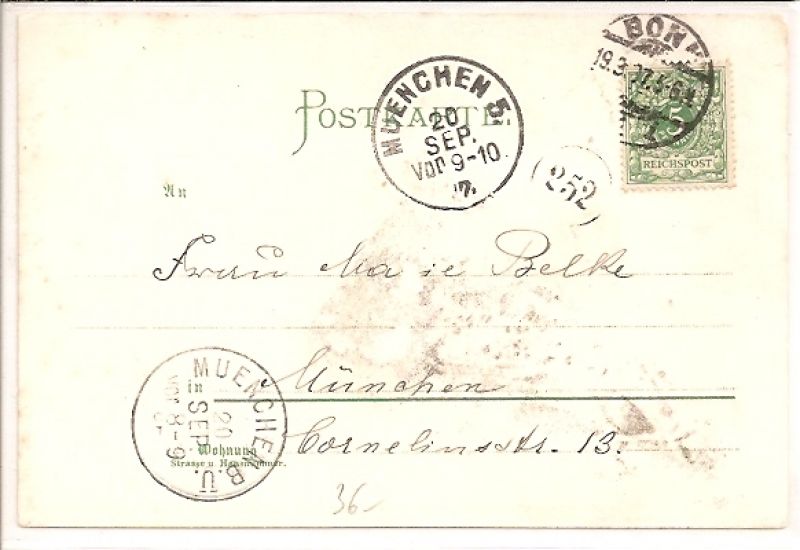 BONN
19.3
1.
POSTKARTE.
MUENCHEN 5.
20
SEP.
VOR 9-10
5
REICHSPOST
252
An
Frau Ma ie Belke
MUENCHEN B.U.
20
SEP.
VOR 8-9
in München
Wohnung Corneliusstr. 13.
Strasse u. Hausnummer.
36-